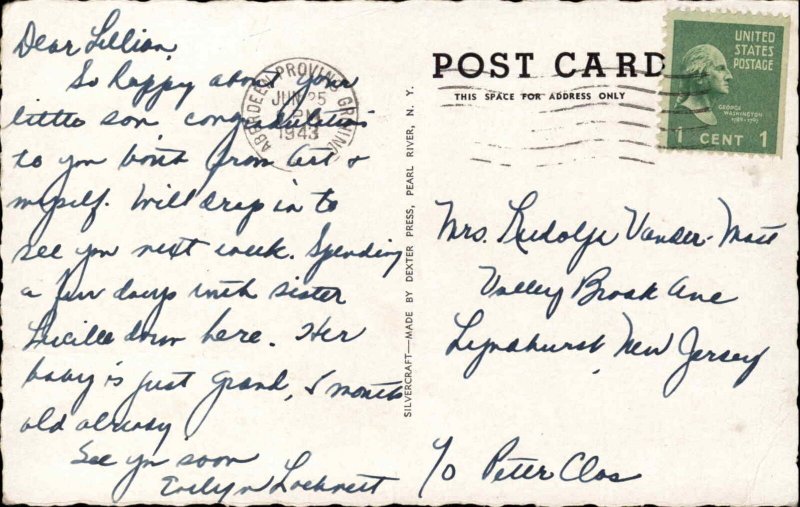 Dear Lillian,
So happy about your
little son, congratulations
to you both from Art &
myself. Will drop in to
see you next week. Spending
a few days with sister
Lucille down here. Her
baby is just grand, 5 months
old already
See yn soon
Evelyn Locknest
ABERDEEN PROVING GROUND
JUN 25
PM
1943
SILVERCRAFT—MADE BY DEXTER PRESS, PEARL RIVER, N. Y.
POST CARD
THIS SPACE FOR ADDRESS ONLY
UNITED
STATES
POSTAGE
GEORGE
WASHINGTON
1789-1797
1 CENT 1
Mrs. Rudolph Vander-Matt
Valley Brook Ave
Lyndhurst, New Jersey
c/o Peter Clos